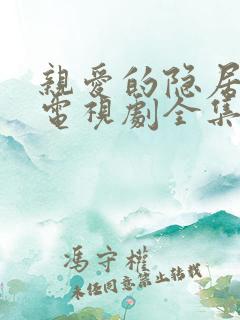 親愛的隐居
電視劇全集
馮守權
未经同意禁止转载